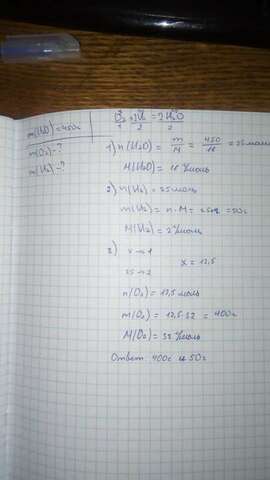 m(H₂O)=450г
m(O₂)-?
m(H₂)-?
O₂+2H₂ = 2H₂O
1 2 2
1) n(H₂O) = m/M = 450/18 = 25 моль
M(H₂O) = 18 г/моль
2) n(H₂) = 25 моль
m(H₂) = n·M = 25·2 = 50г
M(H₂) = 2 г/моль
3) x → 1
x = 12,5
25 → 2
n(O₂) = 12,5 моль
m(O₂) = 12,5·32 = 400г
M(O₂) = 32 г/моль
Ответ 400г и 50г